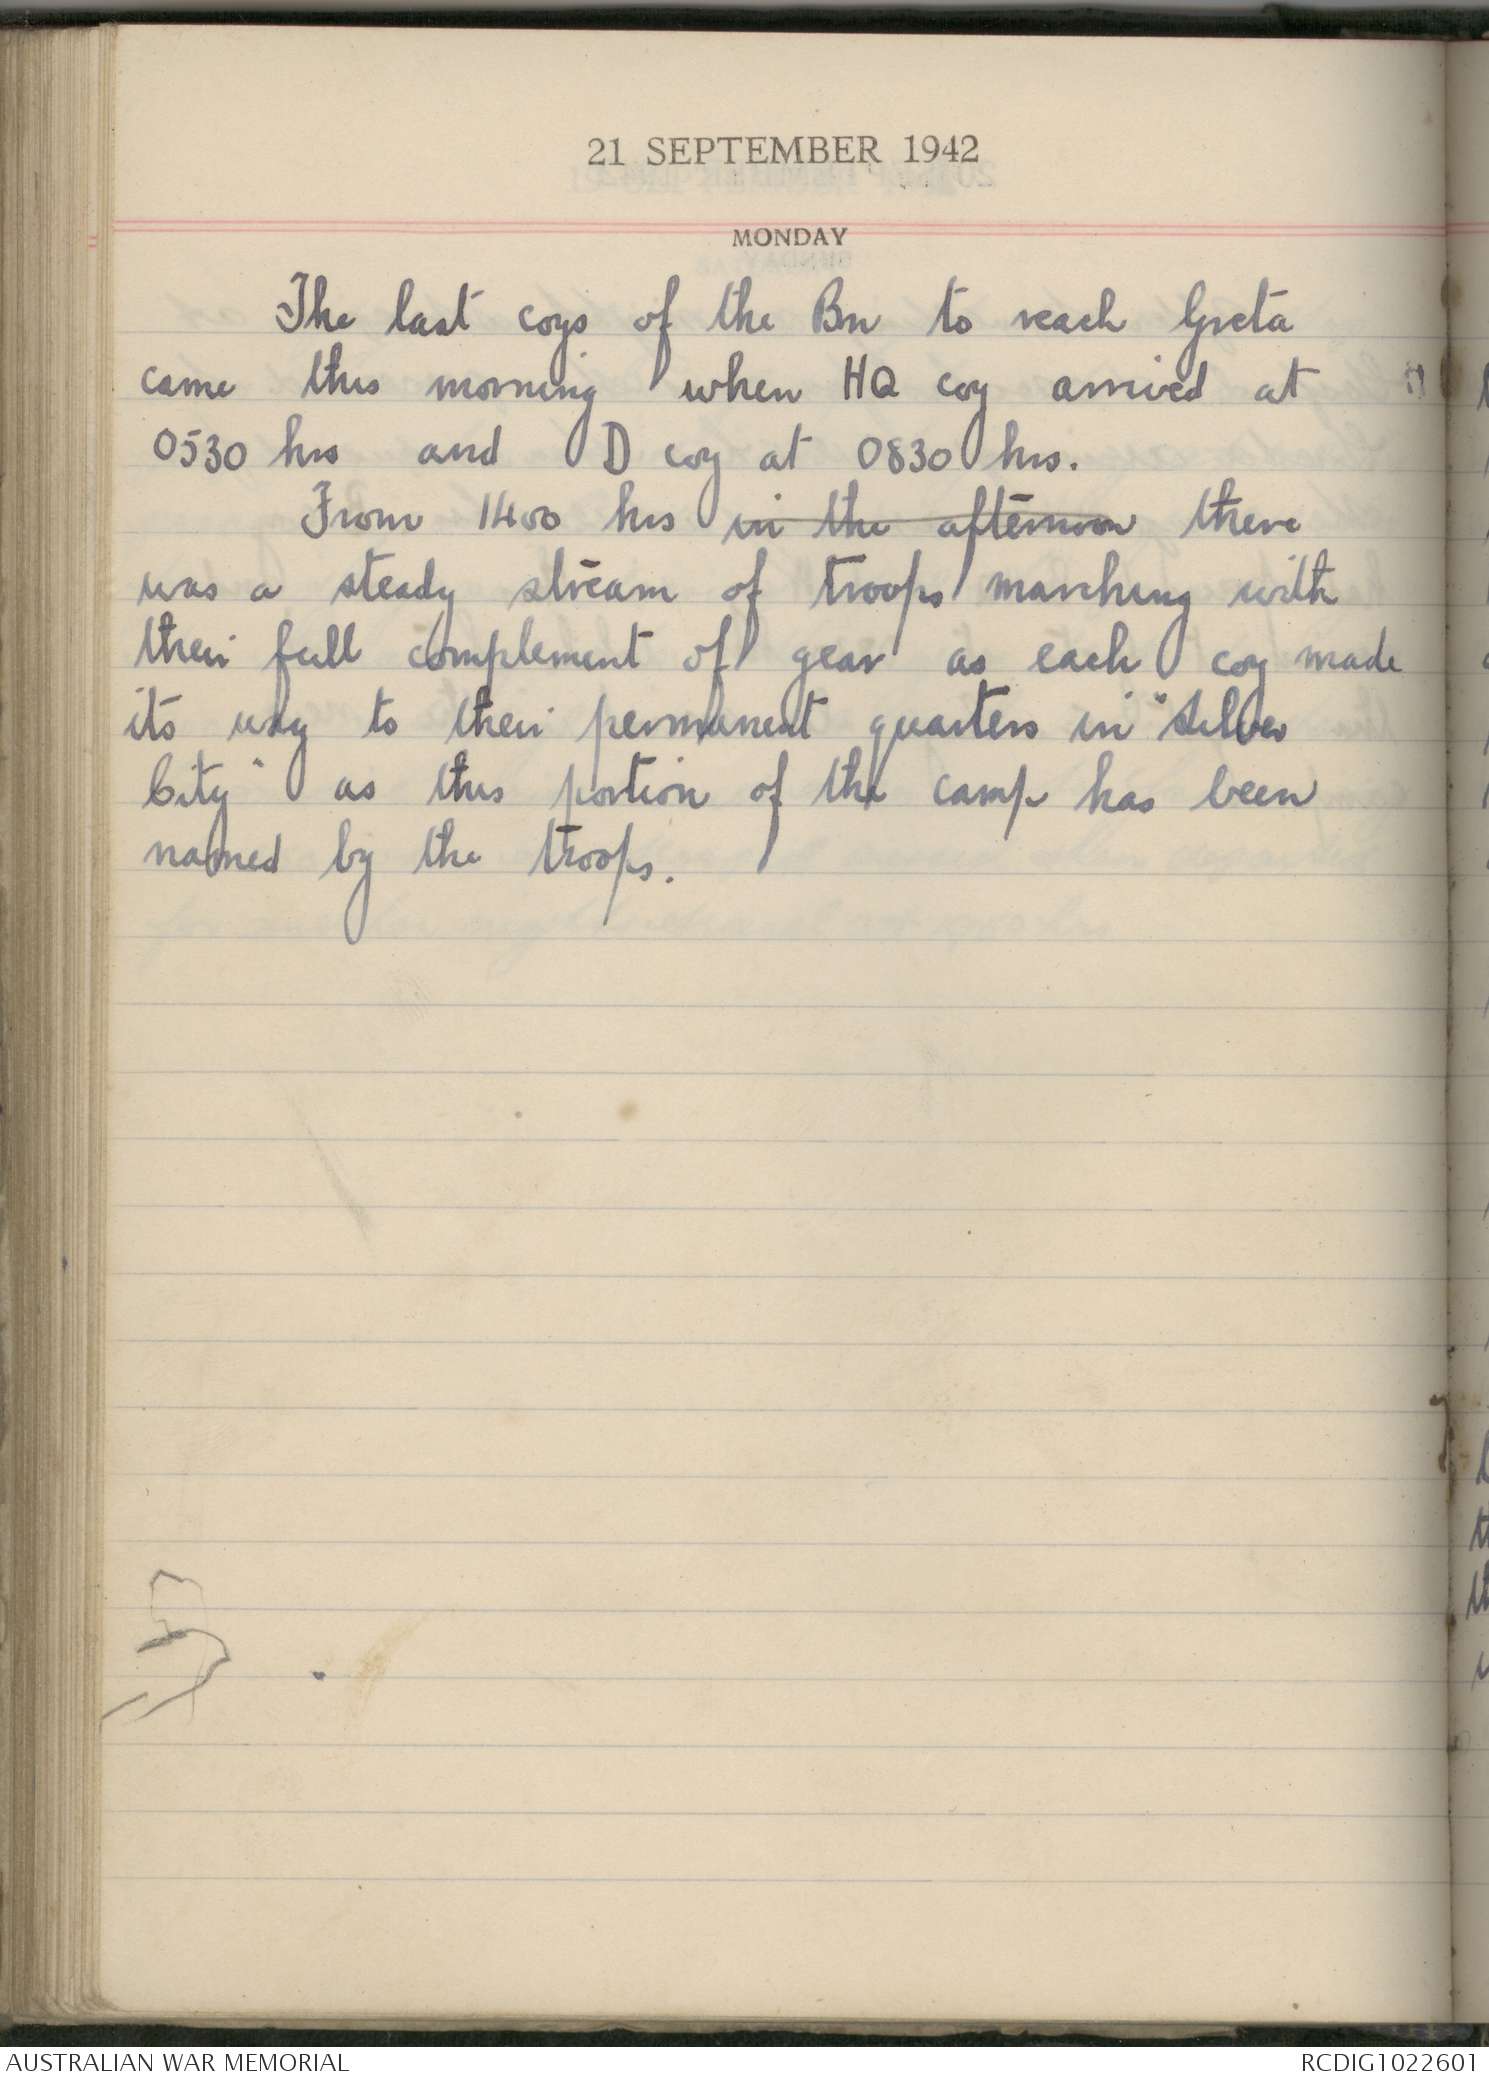 21 SEPTEMBER 1942
MONDAY
The last coys of the Bn to reach Greta
came this morning when HQ coy arrived at
0530 hrs and D coy at 0830 hrs.
From 1400 hrs in the afternoon there
was a steady stream of troops marching with
their full complement of gear as each coy made
its way to their permanent quarters in "Silver
City" as this portion of the camp has been
named by the troops.
AUSTRALIAN WAR MEMORIAL
RCDIG1022601